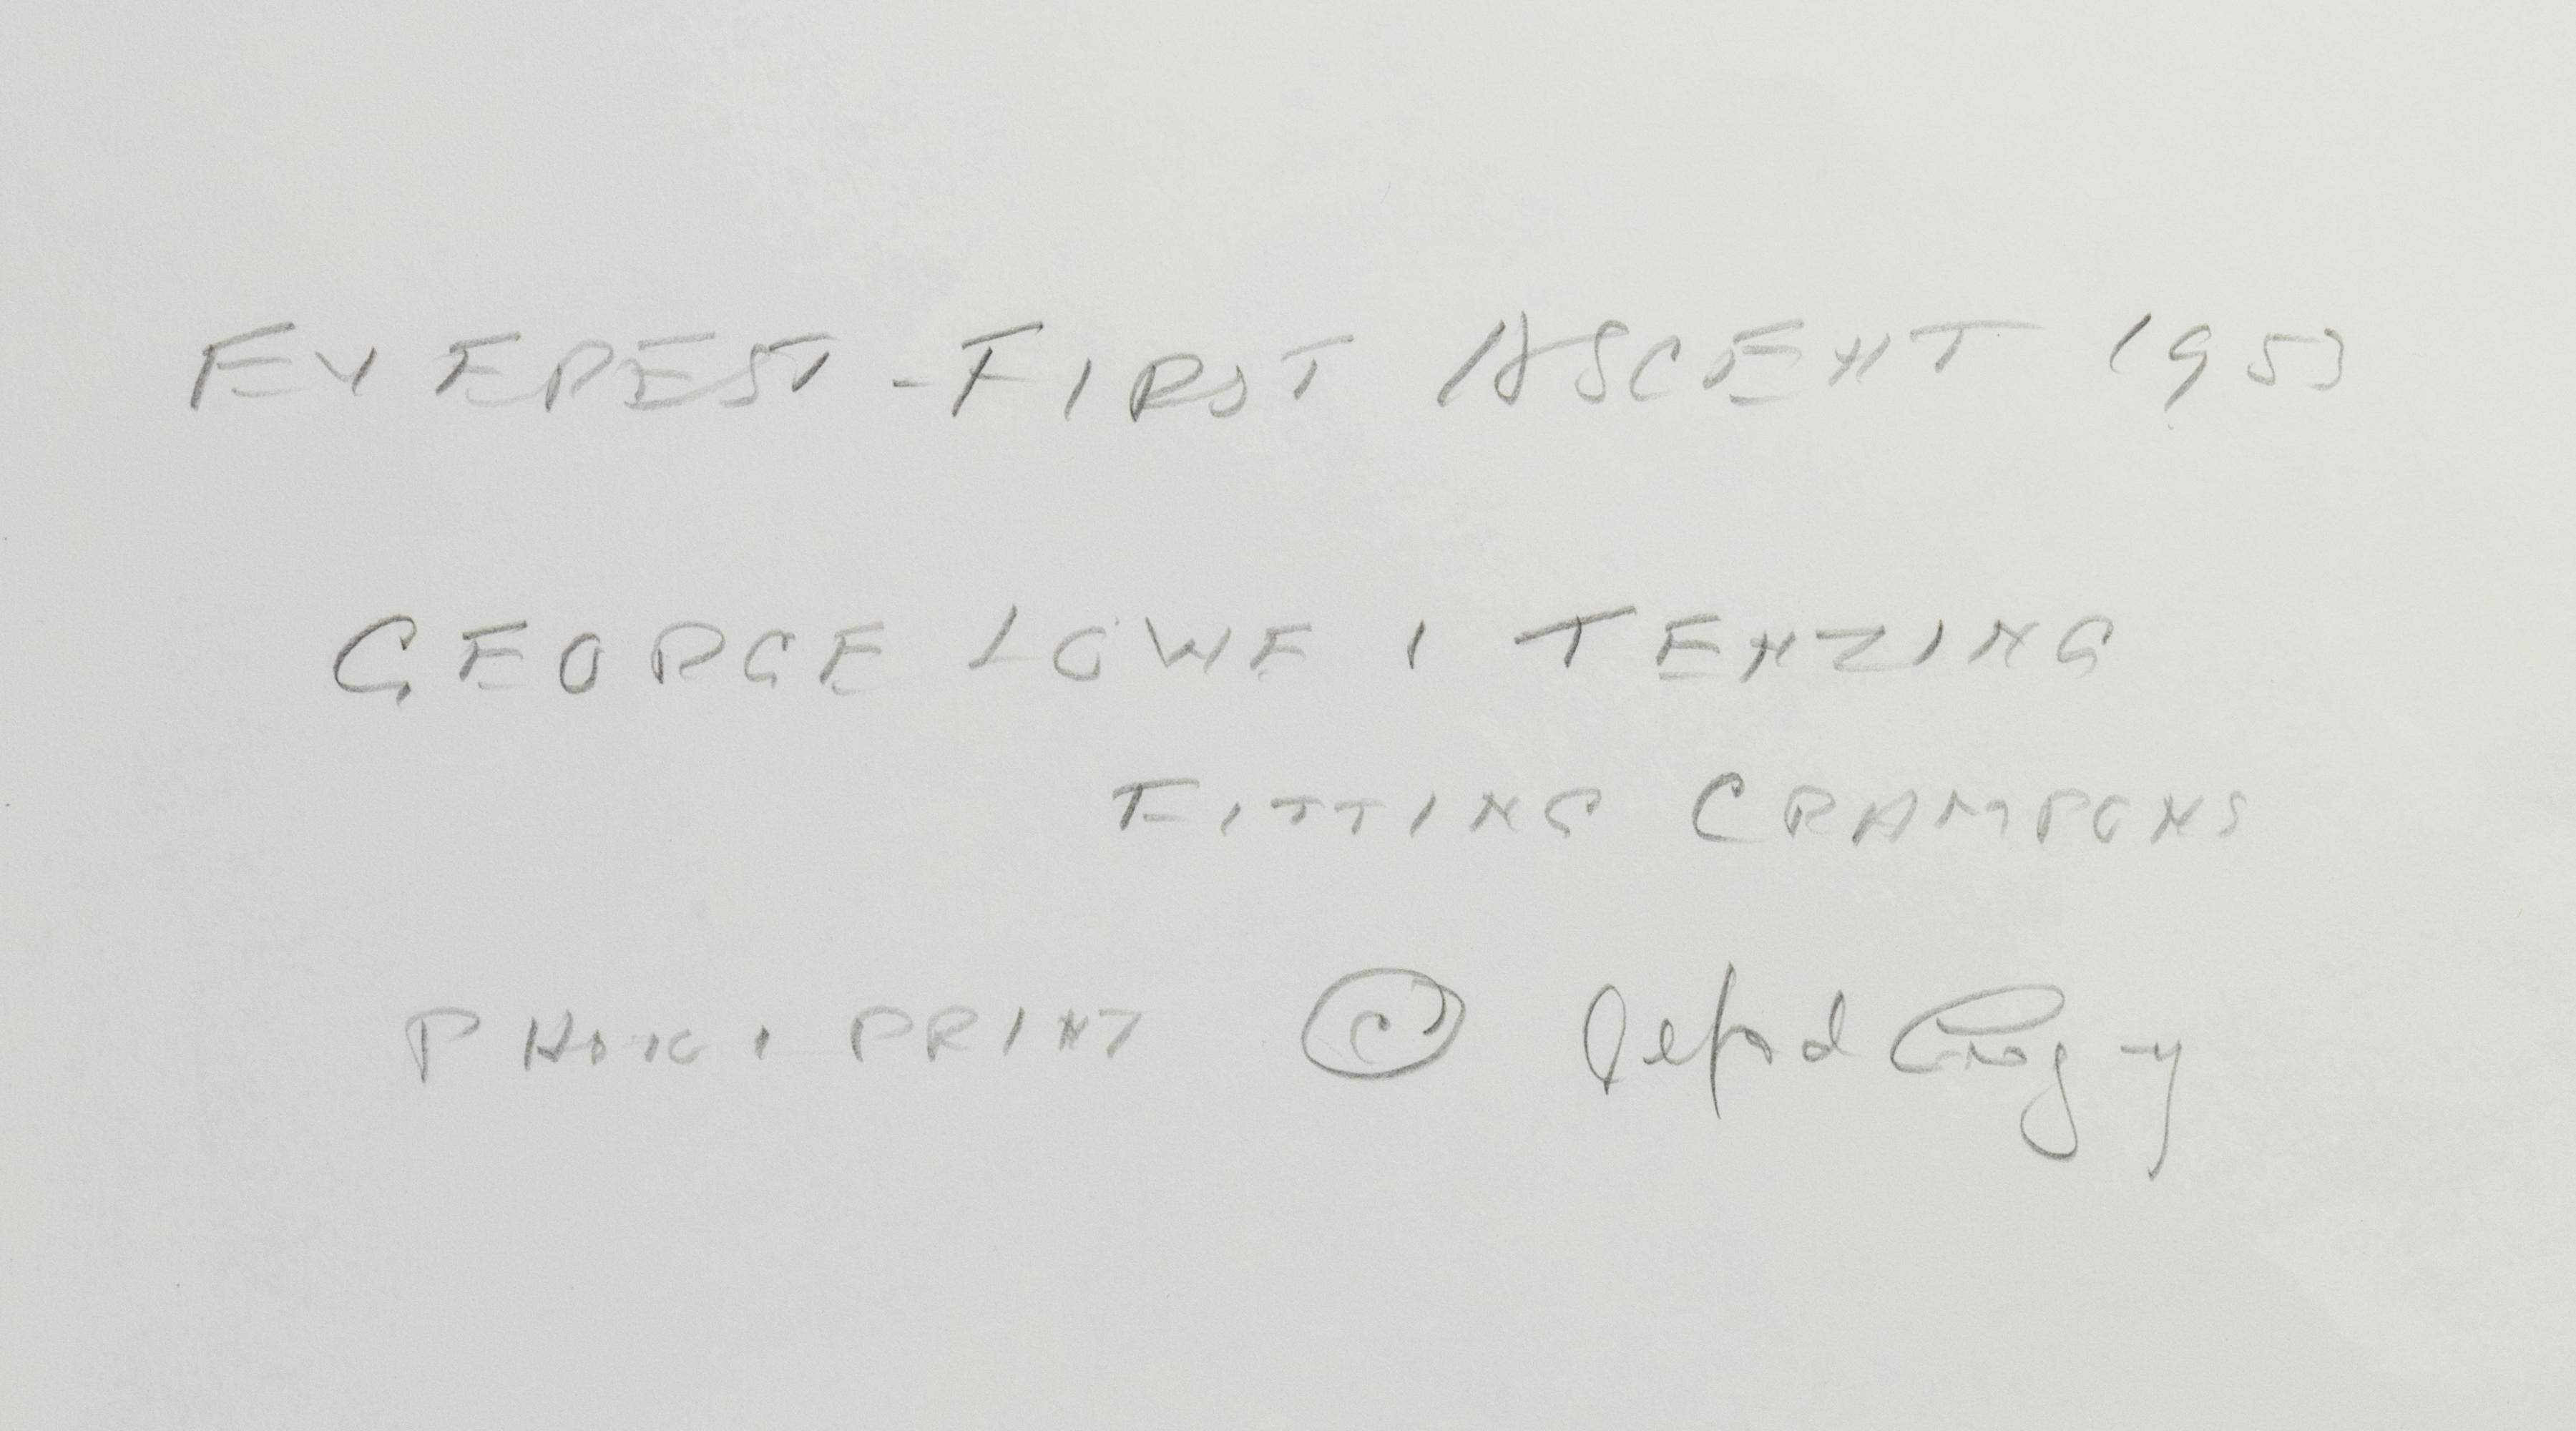 EVEREST - FIRST ASCENT 1953
GEORGE LOWE & TENZING
FITTING CRAMPONS
PHOTO & PRINT © Alfred Gregory